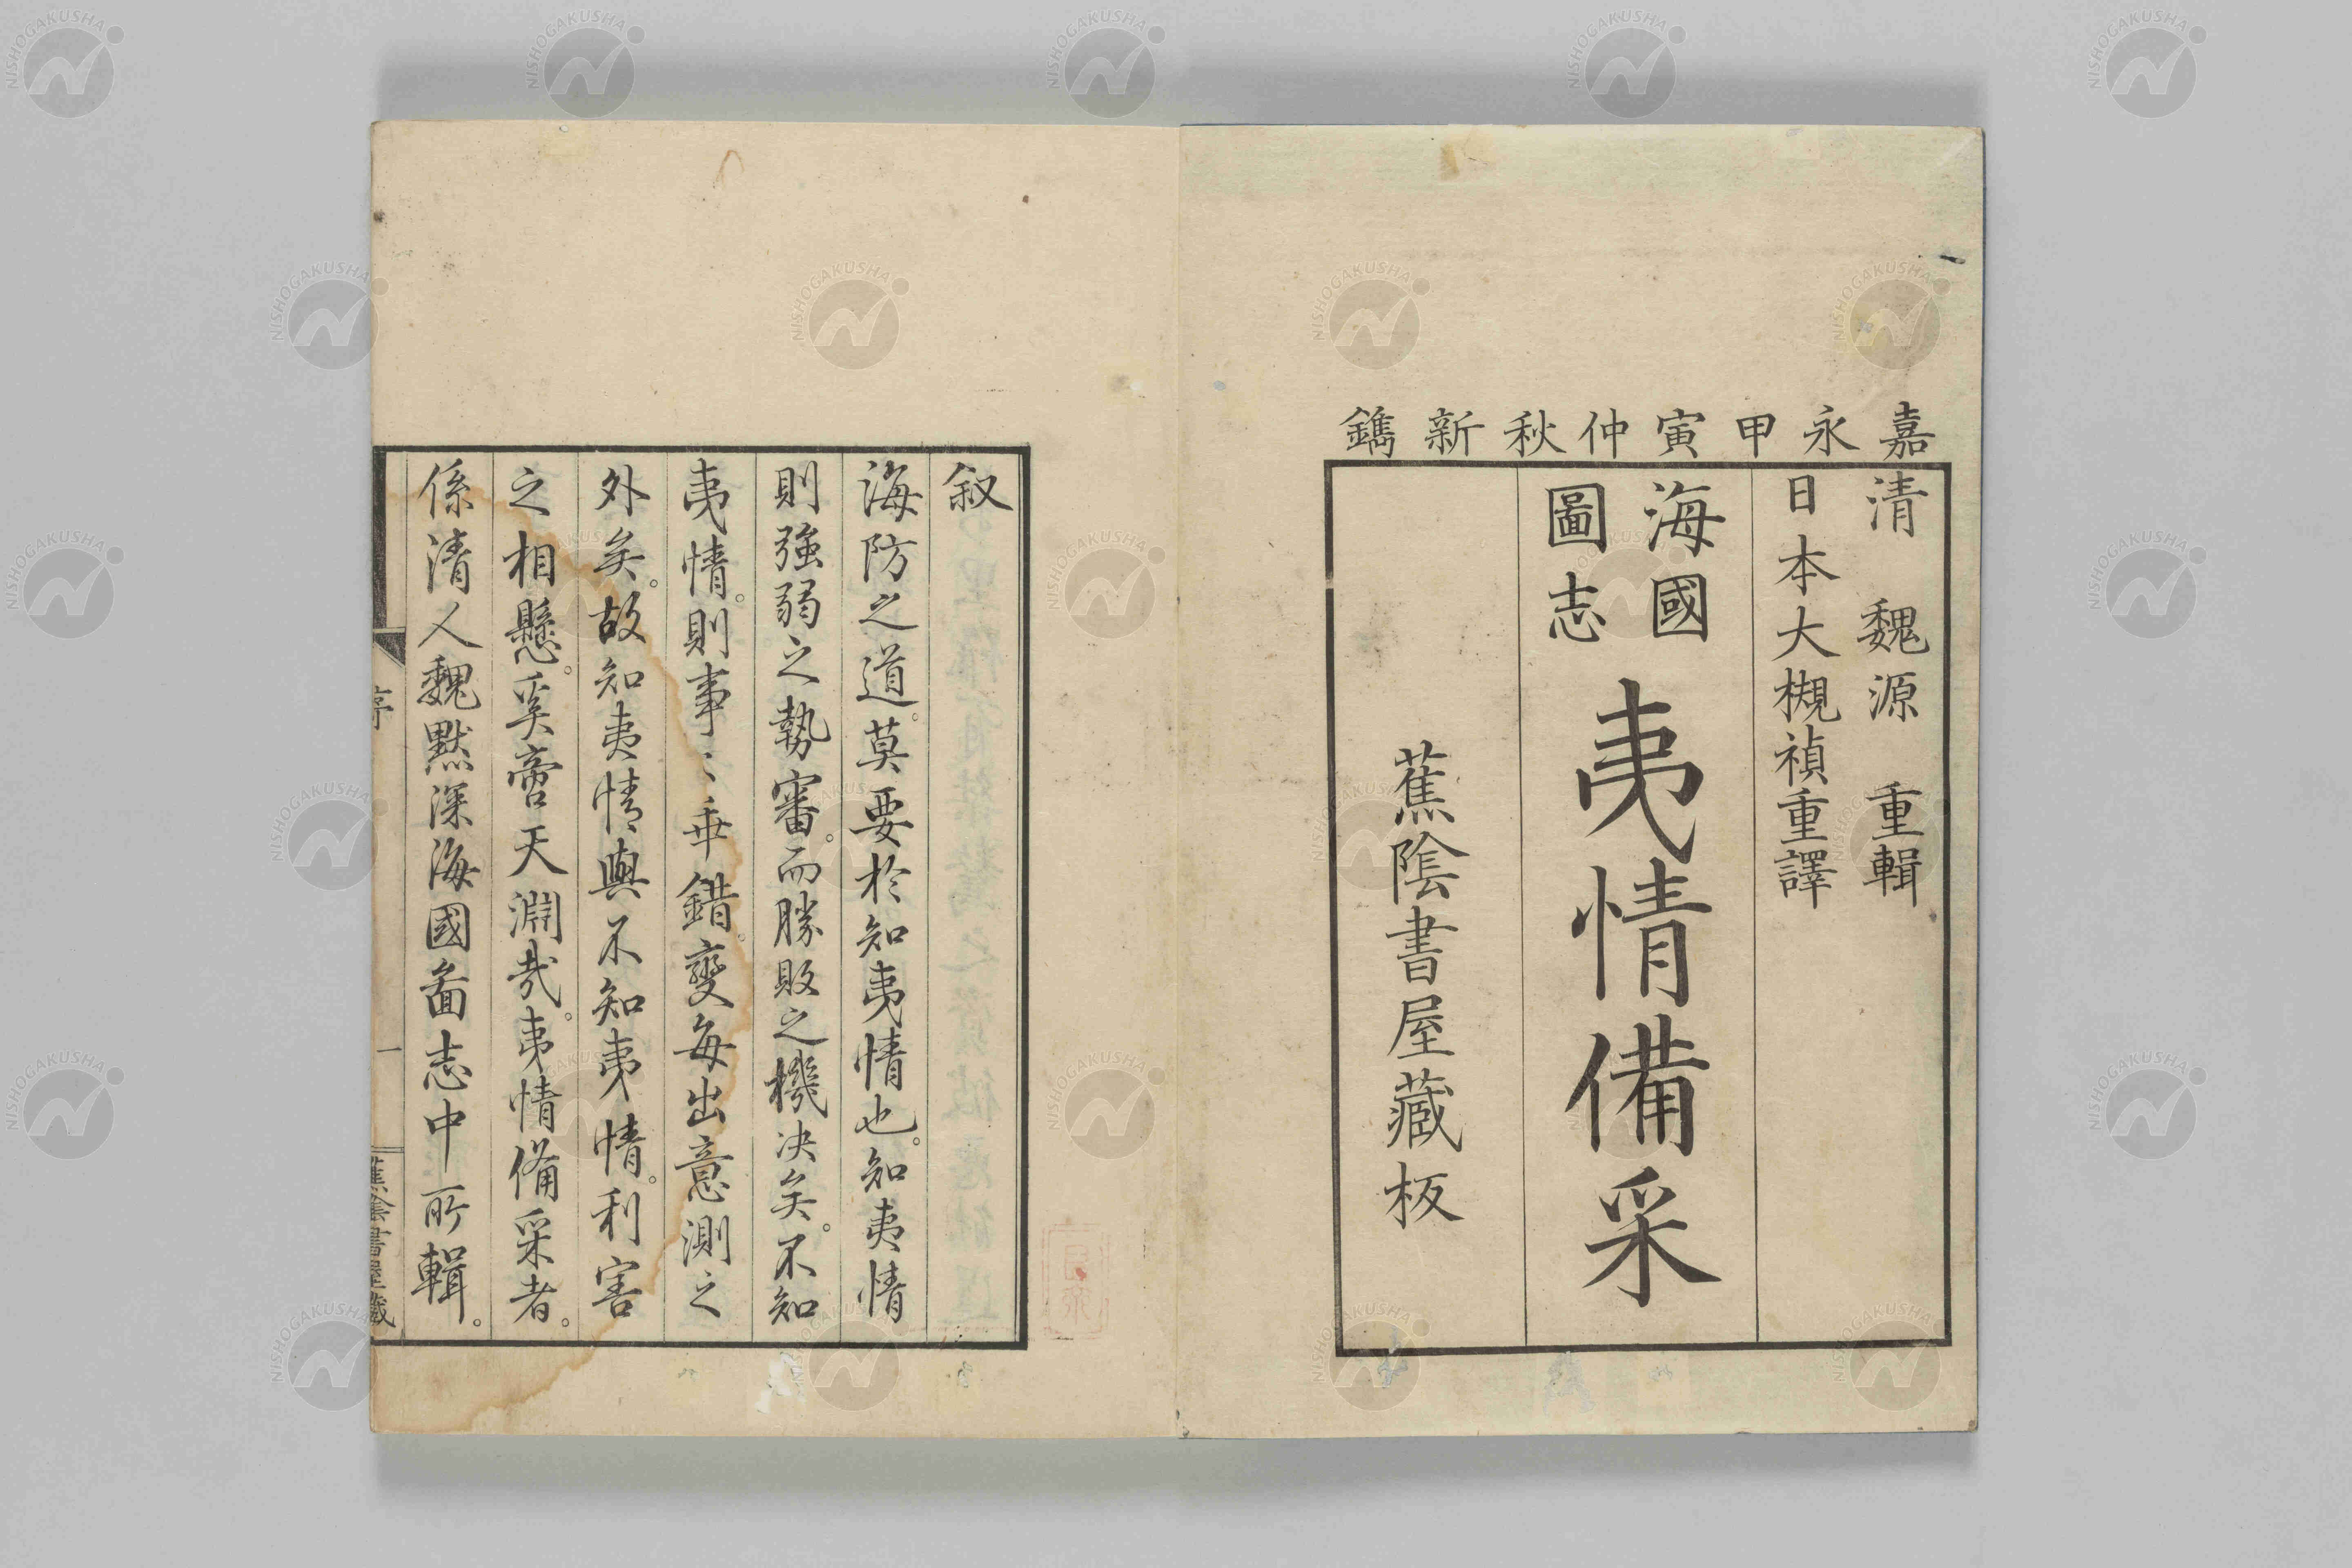 嘉永甲寅仲秋新鐫
清 魏源 重輯
日本大槻禎重譯
海國
圖志
夷情備采
蕉陰書屋藏板
叙
海防之道。莫要於知夷情也。知夷情
則強弱之勢審。而勝敗之機決矣。不知
夷情。則事〻乖錯。變每出意測之
外矣。故知夷情與不知夷情。利害
之相懸。奚啻天淵哉。夷情備采者。
係清人魏默深海國啚志中所輯。
序
一
蕉陰書屋藏
NISHOGAKUSHA